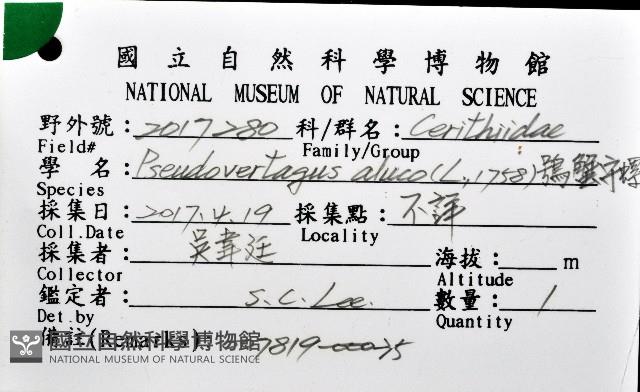 國立自然科學博物館
NATIONAL MUSEUM OF NATURAL SCIENCE
野外號：2017280 科/群名：Cerithiidae
Field# Family/Group
學 名：Pseudovertagus aluco (L., 1758) 鴞蟹守螺
Species
採集日：2017.4.19 採集點：不詳
Coll.Date Locality
採集者：吳韋廷 海拔：m
Collector Altitude
鑑定者：S.C. Lee. 數量：1
Det.by Quantity
備註(Remarks)
國立自然科學博物館
NATIONAL MUSEUM OF NATURAL SCIENCE